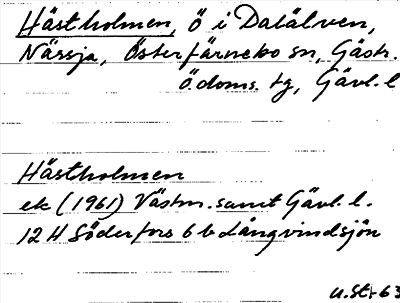 Hästholmen, Ö i Dalälven,
Nässja, Österfärnebo sn, Gästr.
Ö. doms. tg, Gävl. l
Hästholmen
ek (1961) Västm. samt Gävl. l.
12 H Söderfors 6 b Långvindsjön
U.St-63